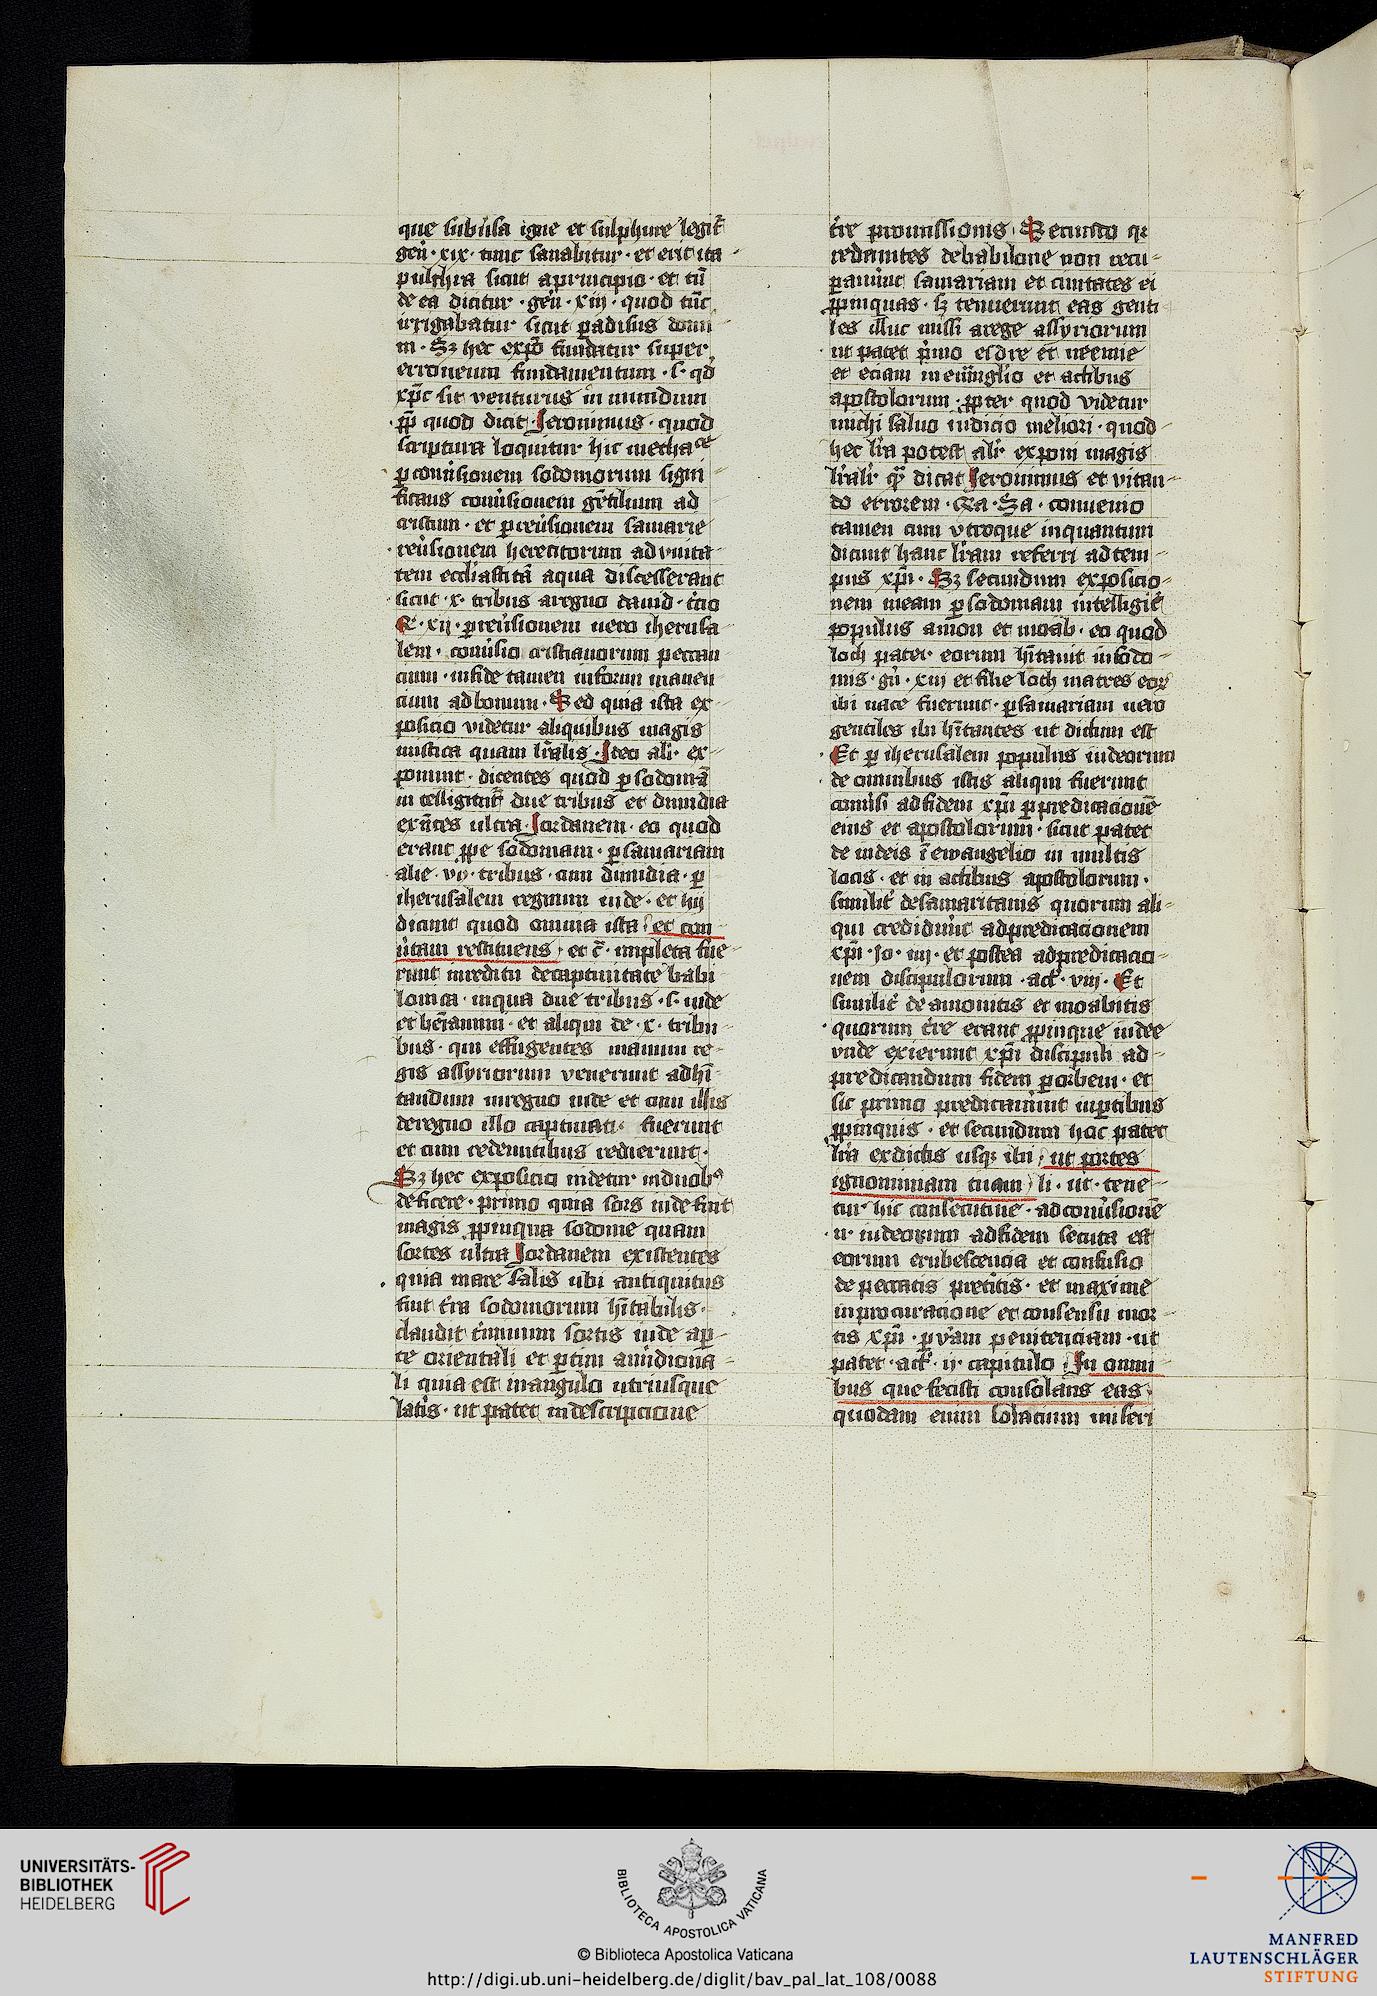 que subu̇sa igne et sulphure legit᷑
geń · xix · tunc sanabitur · et erit ita
pulchra sicut a principio · et tū
de ea dicitur · geń · xiii · quod tūc
irrigabatur sicut padisus domi
ni · Sꝫ hec expō fundatur super
erroneum fundamentum · s · qd̓
xp̄c sit venturus in mundum
ꝓp̄ quod dicit Jeronimus · quod
scriptura loquitur hic methace
ꝑ conu̇sionem sodomorum signi
ficans conu̇sionem gētilium ad
cristum · et ꝑ reu̇sionem samarie
reu̇sionem hereticorum ad vnita
tem eccl̓iasticā a qua discesserant
sicut · x · tribus a regno dauid · t̓cio
R̓ · xij · ꝑ reu̇sionem uero iherusa
lem · conu̇sio cristianorum peccan
cium · in fide tamen inform manen
cium ad bonum · Sed quia ista ex
posicio videtur aliquibus magis
mistica quam lr̄alis · Ideo alr̄ · ex
ponunt · dicentes quod ꝑ sodomā
in telligitur due tribus et dimidia
exn̄tes ultra Jordanem · eo quod
erant ꝓpe sodomam · ꝑ samariam
alie · vij · tribus · cum dimidia · ꝑ
iherusalem regnum iude · et hij
dicunt quod omnia ista · et con
u̇tam restituens · et c̄ · impleta fue
runt in reditu de captiuitate babi
lonica · in qua due tribus · s · iude
et beniamin · et aliqui de · x · tribu
bus · qui effugentes manum re
gis assyriorum venerunt ad hi̅
tandum in regno iude et cum illis
de regno illo captiuati · fuerunt
et cum redeuntibus redierunt ·
Sꝫ hec exposicio uidetur in duobꝫ
deficere · primo quia sors iude fuit
magis ꝓpinqua sodome quam
sortes ultra Jordanem existentes
quia mare salis ubi antiquitus
fuit t̓ra sodomorum hi̅tabilis ·
claudit t̓minum sortis iude a ꝑ
te orientali et ꝑtim a mi̓diona
li quia est in angulo utriusque
latis · ut patet in descripcione
t̓re promissionis · Secundo qꝛ
redeuntes de babilone non recu
ꝑauu̇nt samariam et ciuitates ei
ꝓpinquas · sꝫ tenuerunt eas genti
les illuc missi a rege assyriorum
ut patet pi̓mo esdre et neemie
et eciam in euu̅nglio et actibus
apostolorum · ꝓpter quod videtur
michi saluo iudicio meliori · quod
hec lr̄a potest alr̄ exponi magis
lr̄alr̄ qͣ dicat Jeronimus et vitan
do errorem · Ra · Sa · conuenio
tamen cum vtroque inquantum
dicunt hanc lr̄am referri ad tem
pus xp̄i · Sꝫ secundum exposicio
nem meam ꝑ sodomam intelligit᷑
populus amon et moab · eo quod
loth pater eorum hi̅tauit in sodo
mis · gn̄ · xiij et filie loth matres eoꝝ
ibi nate fuerunt · ꝑ samariam uero
gentiles ibi hi̅tantes ut dictum est
Et ꝑ iherusalem populus iudeorum
de omnibus istis aliqui fuerunt
conu̇si ad fidem xp̄i ꝑ predicacionē
eius et apostolorum · sicut patet
de iudeis ī ewangelio in multis
locis · et in actibus apostolorum ·
similit̓ de samaritanis quorum ali
qui credidu̇nt ad predicacionem
xp̄i · Jo · iiij · et postea ad predicacio
nem discipulorum · act᷑ · viij · Et
similit̓ de amonitis et moabitis
quorum t̓re erant ꝓpinque iudee
vnde exierunt xp̄i discipuli ad
predicandum fidem ꝑ orbem · et
sic primo predicauu̇nt in ꝑtibus
ꝓpinquis · et secundum hoc patet
lr̄a ex dictis usqꝫ ibi · ut portes
ignominiam tuam · li · ut · tene
tur hic consecutiue · ad conu̇sionē
n̄ · iudeorum ad fidem secuta est
eorum erubescencia et confusio
de peccatis preti̓tis · et maxime
in procuracione et consensu mor
tis xp̄i · ꝑ ve̓am penitenciam · ut
patet · act᷑ · ij · capitulo · In omni
bus que fecisti consolans eas ·
quodam enim solacium miseri
UNIVERSITÄTS-
BIBLIOTHEK
HEIDELBERG
BIBLIOTECA APOSTOLICA VATICANA
© Biblioteca Apostolica Vaticana
http://digi.ub.uni-heidelberg.de/diglit/bav_pal_lat_108/0088
MANFRED
LAUTENSCHLÄGER
STIFTUNG